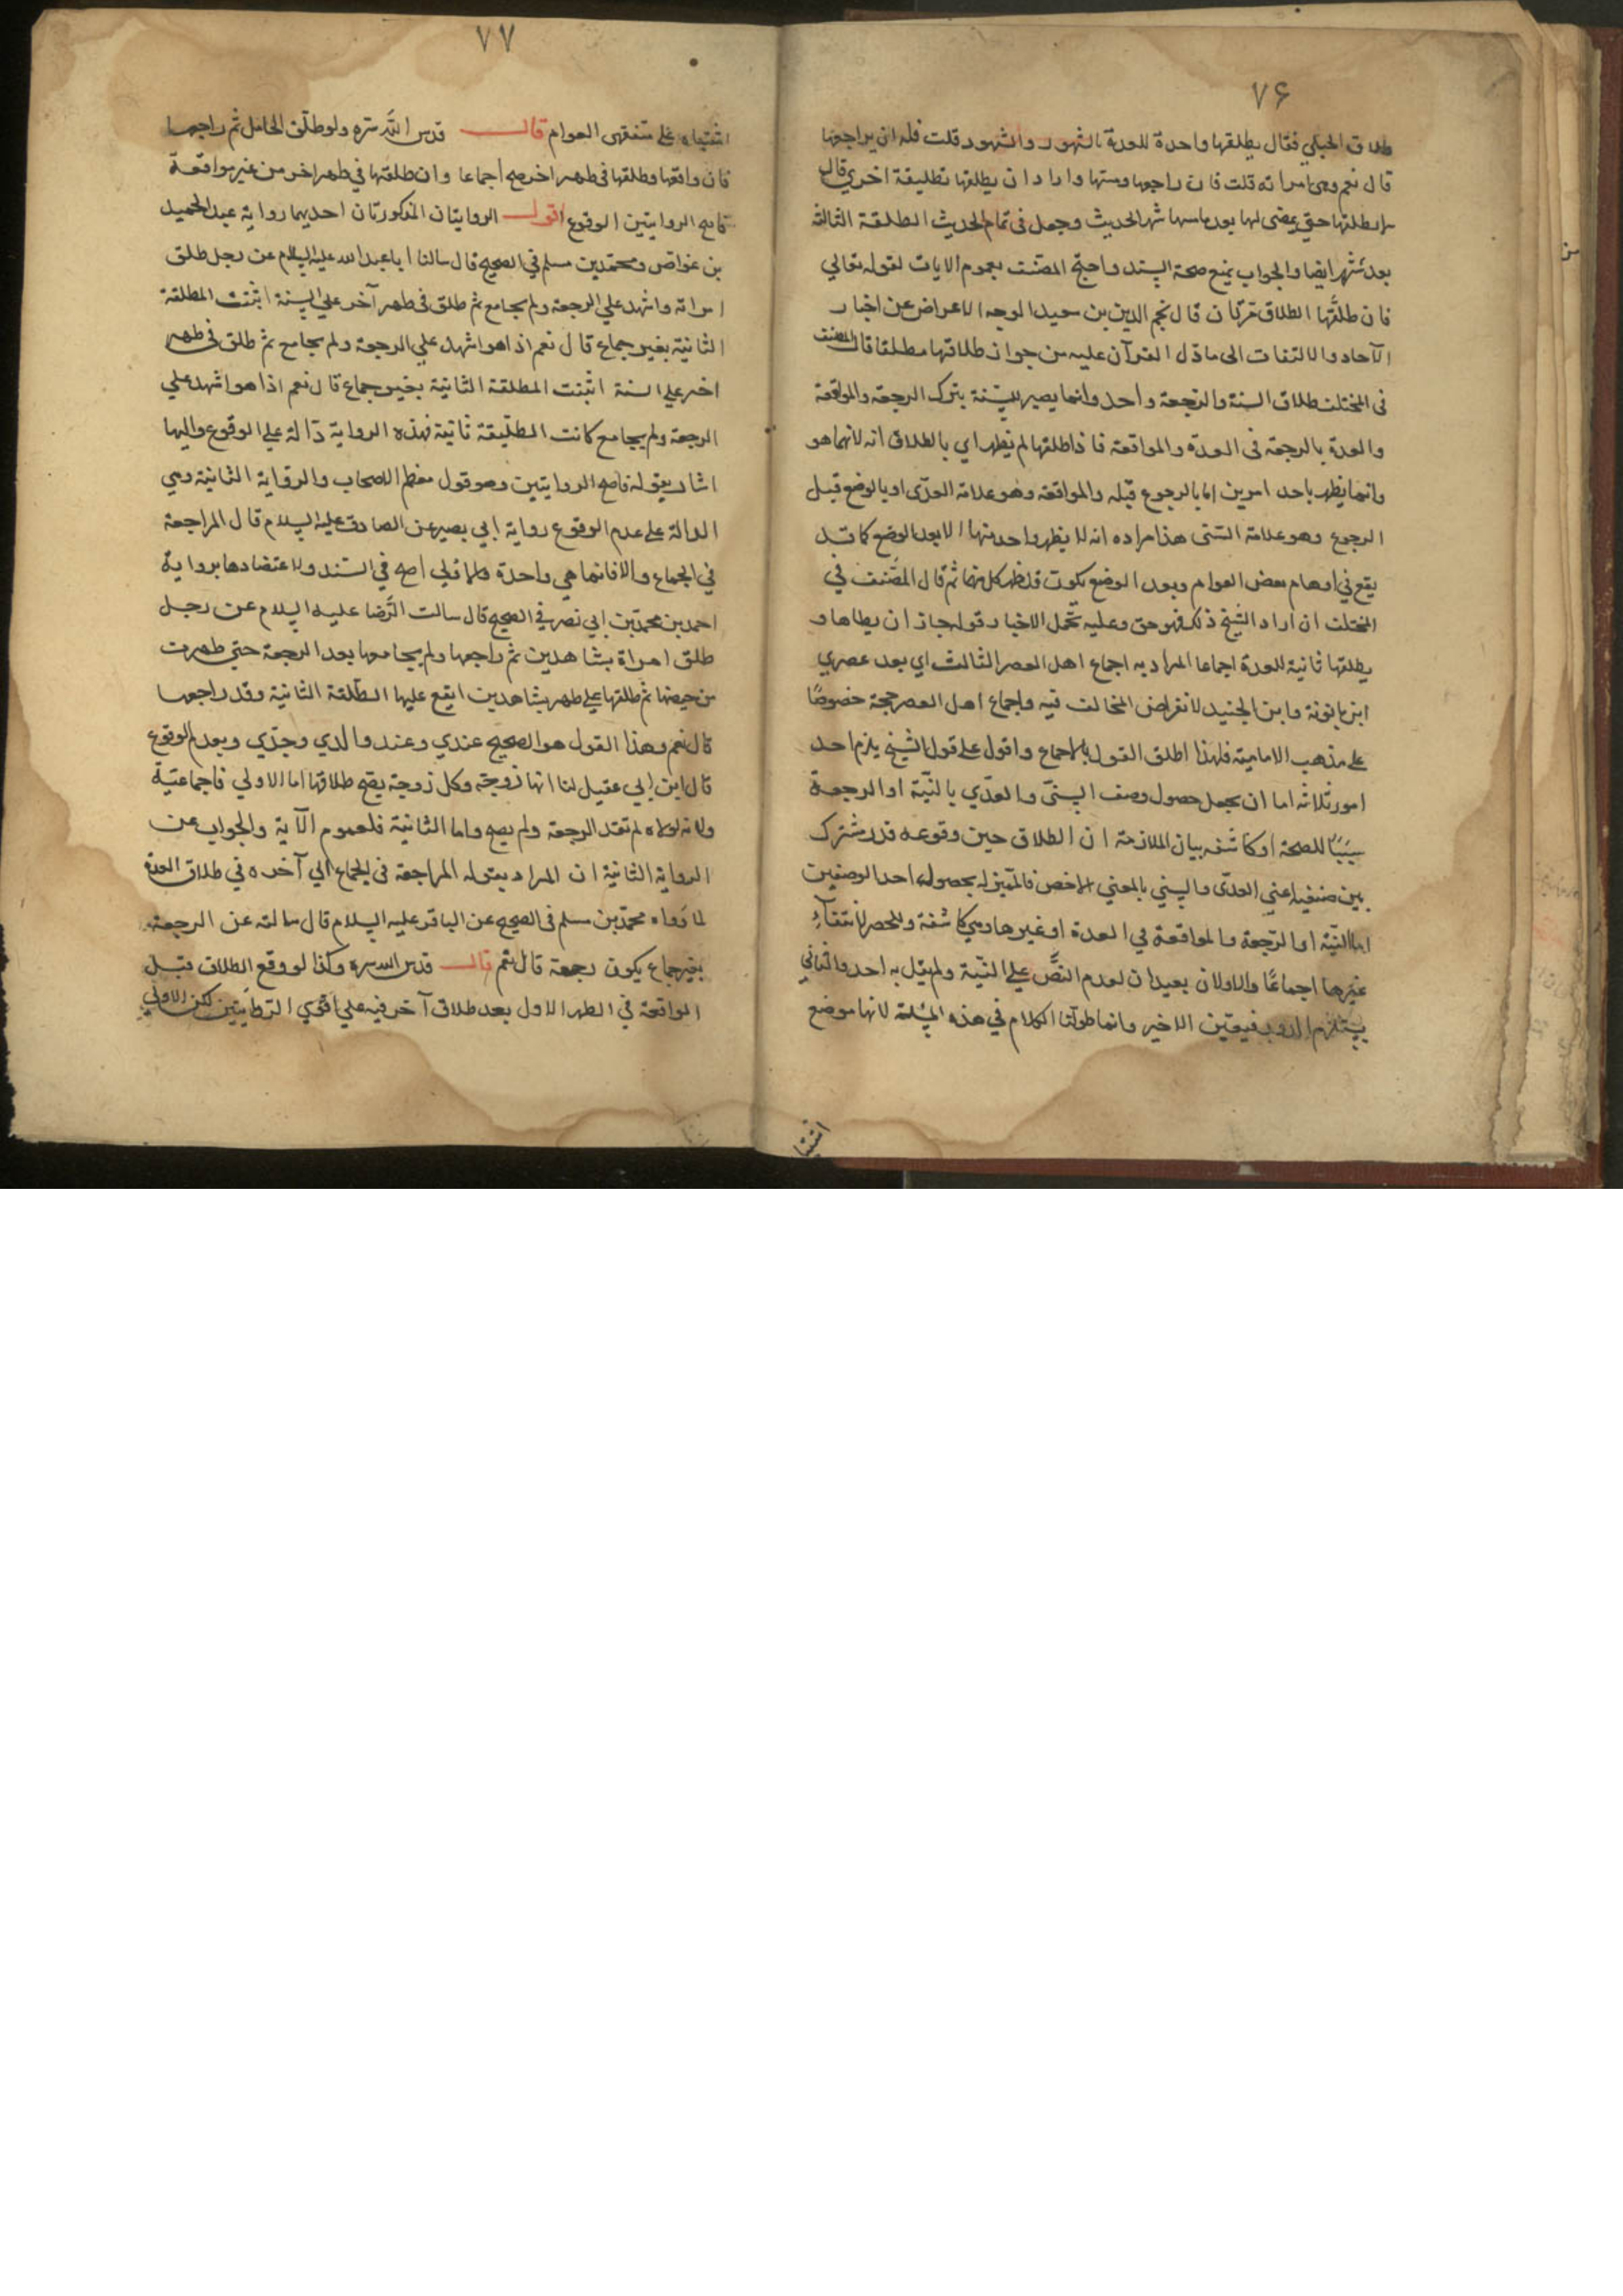 ٧۶
طلاق الحبلي فقال يطلقها واحدة للعدة بالشهور والشهود قلت فله ان يراجعها
قال نعم وهي امراته قلت فان راجعها ومسها واراد ان يطلقها تطليقة اخري قال
لا يطلقها حتي يمضى لها بعد ما مسها شهر الحديث وجعل فى تمام الحديث الطلقة الثالثة
بعد شهر ايضا والجواب بمنع صحة السند واحتج المصنف بعموم الايات لقوله تعالي
فان طلقها الطلاق مرتان قال نجم الدين بن سعيد الوجه الاعراض عن اخبار
الآحاد والالتفات الى ما دل القرآن عليه من جواز طلاقها مطلقا قال المصنف
فى المختلف طلاق السنة والرجعة واحد وانما يصير للسنة بترك الرجعة والمواقعة
والعدة بالرجعة فى العدة والمواقعة فاذا طلقها لم يظهر اي بالطلاق انه لايهما هو
وانما يظهر باحد امرين اما بالرجوع قبله والمواقعة وهو علامة العدي او بالوضع قبل
الرجوع وهو علامة السنى هذا مراده انه لا يظهر واحد منها الا بعد الوضع كما قد
يقع في اوهام بعض العوام وبعد الوضع يكون قد ظهر كل منهما ثم قال المصنف في
المختلف ان اراد الشيخ ذلك فهو حق وعليه تحمل الاخبار قوله جاز ان يطاها و
يطلقها ثانية للعدة اجماعا المراد به اجماع اهل العصر الثالث اي بعد عصري
ابن بابويه وابن الجنيد لانقراض المخالف فيه واجماع اهل العصر حجة خصوصًا
على مذهب الامامية فلهذا اطلق القول بالاجماع واقول على قول الشيخ يلزم احد
امور ثلاثة اما ان يجعل حصول وصف السنىّ والعدّي بالنيّة او الرجعة
سببًا للصحة او كاشفه بيان الملازمة ان الطلاق حين وقوعه قدر مشترك
بين صنفيه اعني العدّى والسني بالمعني الاخص فالمميز له بحصوله احد الوصفين
اما النيّة او الرجعة والمواقعة في العدة او غيرها وهي كاشفة والحصر لانتفاء
غيرها اجماعًا والاولان بعيدان لعدم النصّ علي النيّة ولم يقل به احد والثاني
يستلزم الدور فيتعين الاخير وانما طولنا الكلام في هذه المسئلة لانها موضع
اشتبا
٧٧
اشتباه على متفقهى العوام قال قدس الله سره ولو طلّق الحامل ثم راجعها
فان واقعها وطلقها فى طهر اخر صح اجماعا وان طلقها في طهر اخر من غير مواقعة
فاصح الروايتين الوقوع اقول الروايتان المذكورتان احديهما رواية عبد الحميد
بن عواض ومحمد بن مسلم في الصحيح قال سالنا ابا عبد الله عليه السلام عن رجل طلق
امراته واشهد علي الرجعة ولم يجامع ثم طلق فى طهر آخر علي السنة اثبتت المطلقة
الثانية بغير جماع قال نعم اذا هو اشهد علي الرجعة ولم يجامع ثم طلق فى طهر
اخر علي السنة اثبتت المطلقة الثانية بغير جماع قال نعم اذا هو اشهد علي
الرجعة ولم يجامع كانت التطليقة ثانية فهذه الرواية دالة علي الوقوع واليها
اشار بقوله فاصح الروايتين وهو قول معظم الاصحاب والرواية الثانية وهي
الدالة على عدم الوقوع رواية ابي بصير عن الصادق عليه السلام قال المراجعة
في الجماع والا فانما هي واحدة والاولي اصح في السند ولاعتضادها برواية
احمد بن محمد بن ابي نصر في الصحيح قال سالت الرضا عليه السلام عن رجل
طلق امراة بشاهدين ثم راجعها ولم يجامعها بعد الرجعة حتي طهرت
من حيضها ثم طلقها علي طهر بشاهدين ايقع عليها الطلقة الثانية وقد راجعها
قال نعم وهذا القول هو الصحيح عندي وعند والدي وجدّي وبعدم الوقوع
قال ابن ابي عقيل لنا انها زوجة وكل زوجة يصح طلاقها اما الاولي فاجماعيّة
ولانه لولاه لم تفد الرجعة ولم يصح واما الثانية فلعموم الآية والجواب عن
الرواية الثانية ان المراد بقوله المراجعة فى الجماع الي آخره في طلاق العدة
لما رواه محمد بن مسلم فى الصحيح عن الباقر عليه السلام قال سالته عن الرجعة
بغير جماع يكون رجعة قال نعم قال قدس الله سره وكذا لو وقع الطلاق قبل
المواقعة في الطهر الاول بعد طلاق آخر فيه علي اقوي الروايتين لكن الاولي